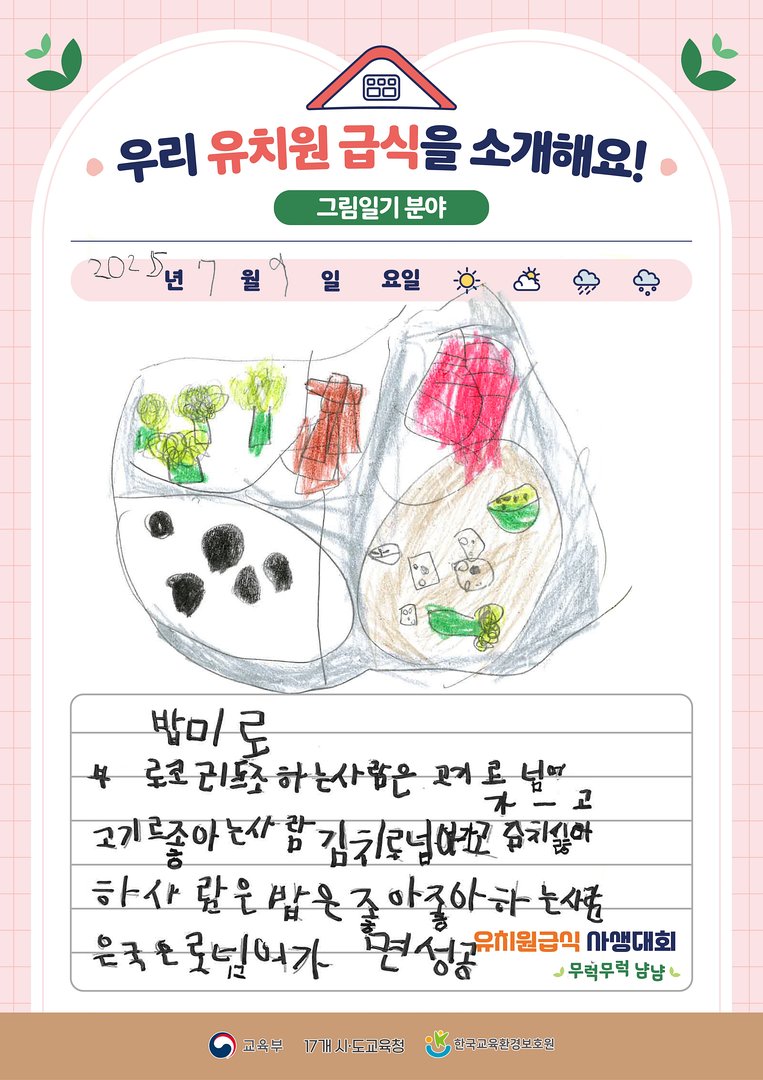 우리 유치원 급식을 소개해요!
그림일기 분야
2025년 7월 9일 요일
밥미로
하는사람은 고기로
고기 좋아 는사람 김치로넘
하사람은 밥은 좋아좋아하는사람
은국으로넘어가면성공
유치원급식 사생대회
무럭무럭 냠냠
교육부 17개 시·도교육청 한국교육환경보호원